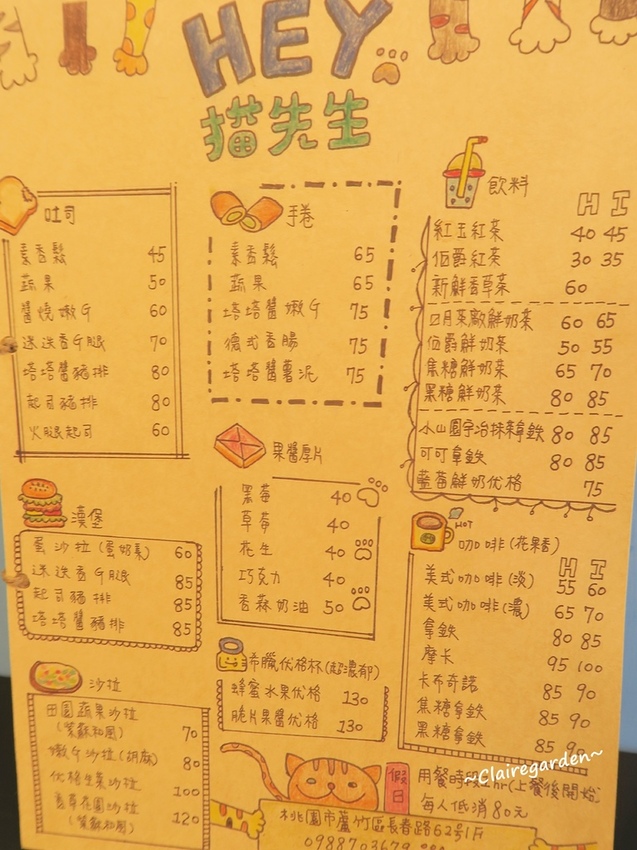 HEY
貓先生
吐司
素香鬆 45
蔬果 50
醬燒嫩G 60
迷迭香G腿 70
塔塔醬豬排 80
起司豬排 80
火腿起司 60
手卷
素香鬆 65
蔬果 65
塔塔醬嫩G 75
德式香腸 75
塔塔醬薯泥 75
飲料 H I
紅玉紅茶 40 45
伯爵紅茶 30 35
新鮮香草茶 60
日月茶廠鮮奶茶 60 65
伯爵鮮奶茶 50 55
焦糖鮮奶茶 65 70
黑糖鮮奶茶 80 85
小山園宇治抹茶拿鐵 80 85
可可拿鐵 80 85
藍莓鮮奶优格 75
漢堡
蛋沙拉(蛋奶素) 60
迷迭香G腿 85
起司豬排 85
塔塔醬豬排 85
果醬厚片
黑莓 40
草莓 40
花生 40
巧克力 40
香蒜奶油 50
HOT
咖啡(花果香)
H I
美式咖啡(淡) 55 60
美式咖啡(濃) 65 70
拿鐵 80 85
摩卡 95 100
卡布奇諾 85 90
焦糖拿鐵 85 90
黑糖拿鐵 85 90
沙拉
田園蔬果沙拉
(紫蘇和風) 70
嫩G沙拉(胡麻) 80
优格生菜沙拉 100
香草花園沙拉
(紫蘇和風) 120
希臘优格杯(超濃郁)
蜂蜜水果优格 130
脆片果醬优格 130
假日
用餐時段 hr(上餐後開始
每人低消80元
桃園市蘆竹區長春路62号1F
~Clairegarden~